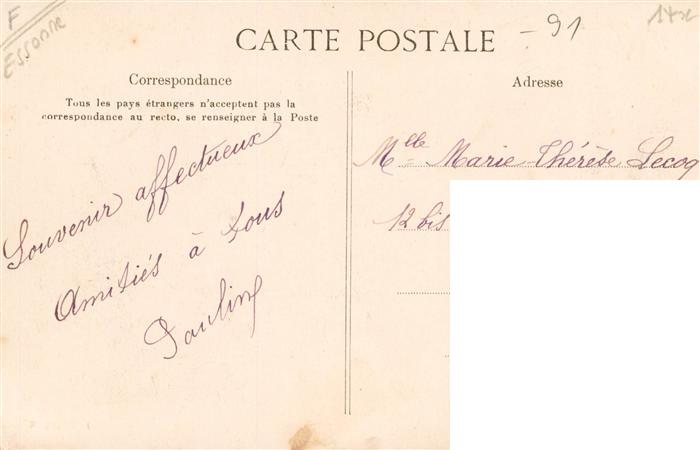 F
Essonne
- 91
CARTE POSTALE
Correspondance
Tous les pays étrangers n'acceptent pas la
correspondance au recto, se renseigner à la Poste
Souvenir affectueux
Amitiés à tous
Pauline
Adresse
Mlle Marie-Thérèse Lecoq
12 bis